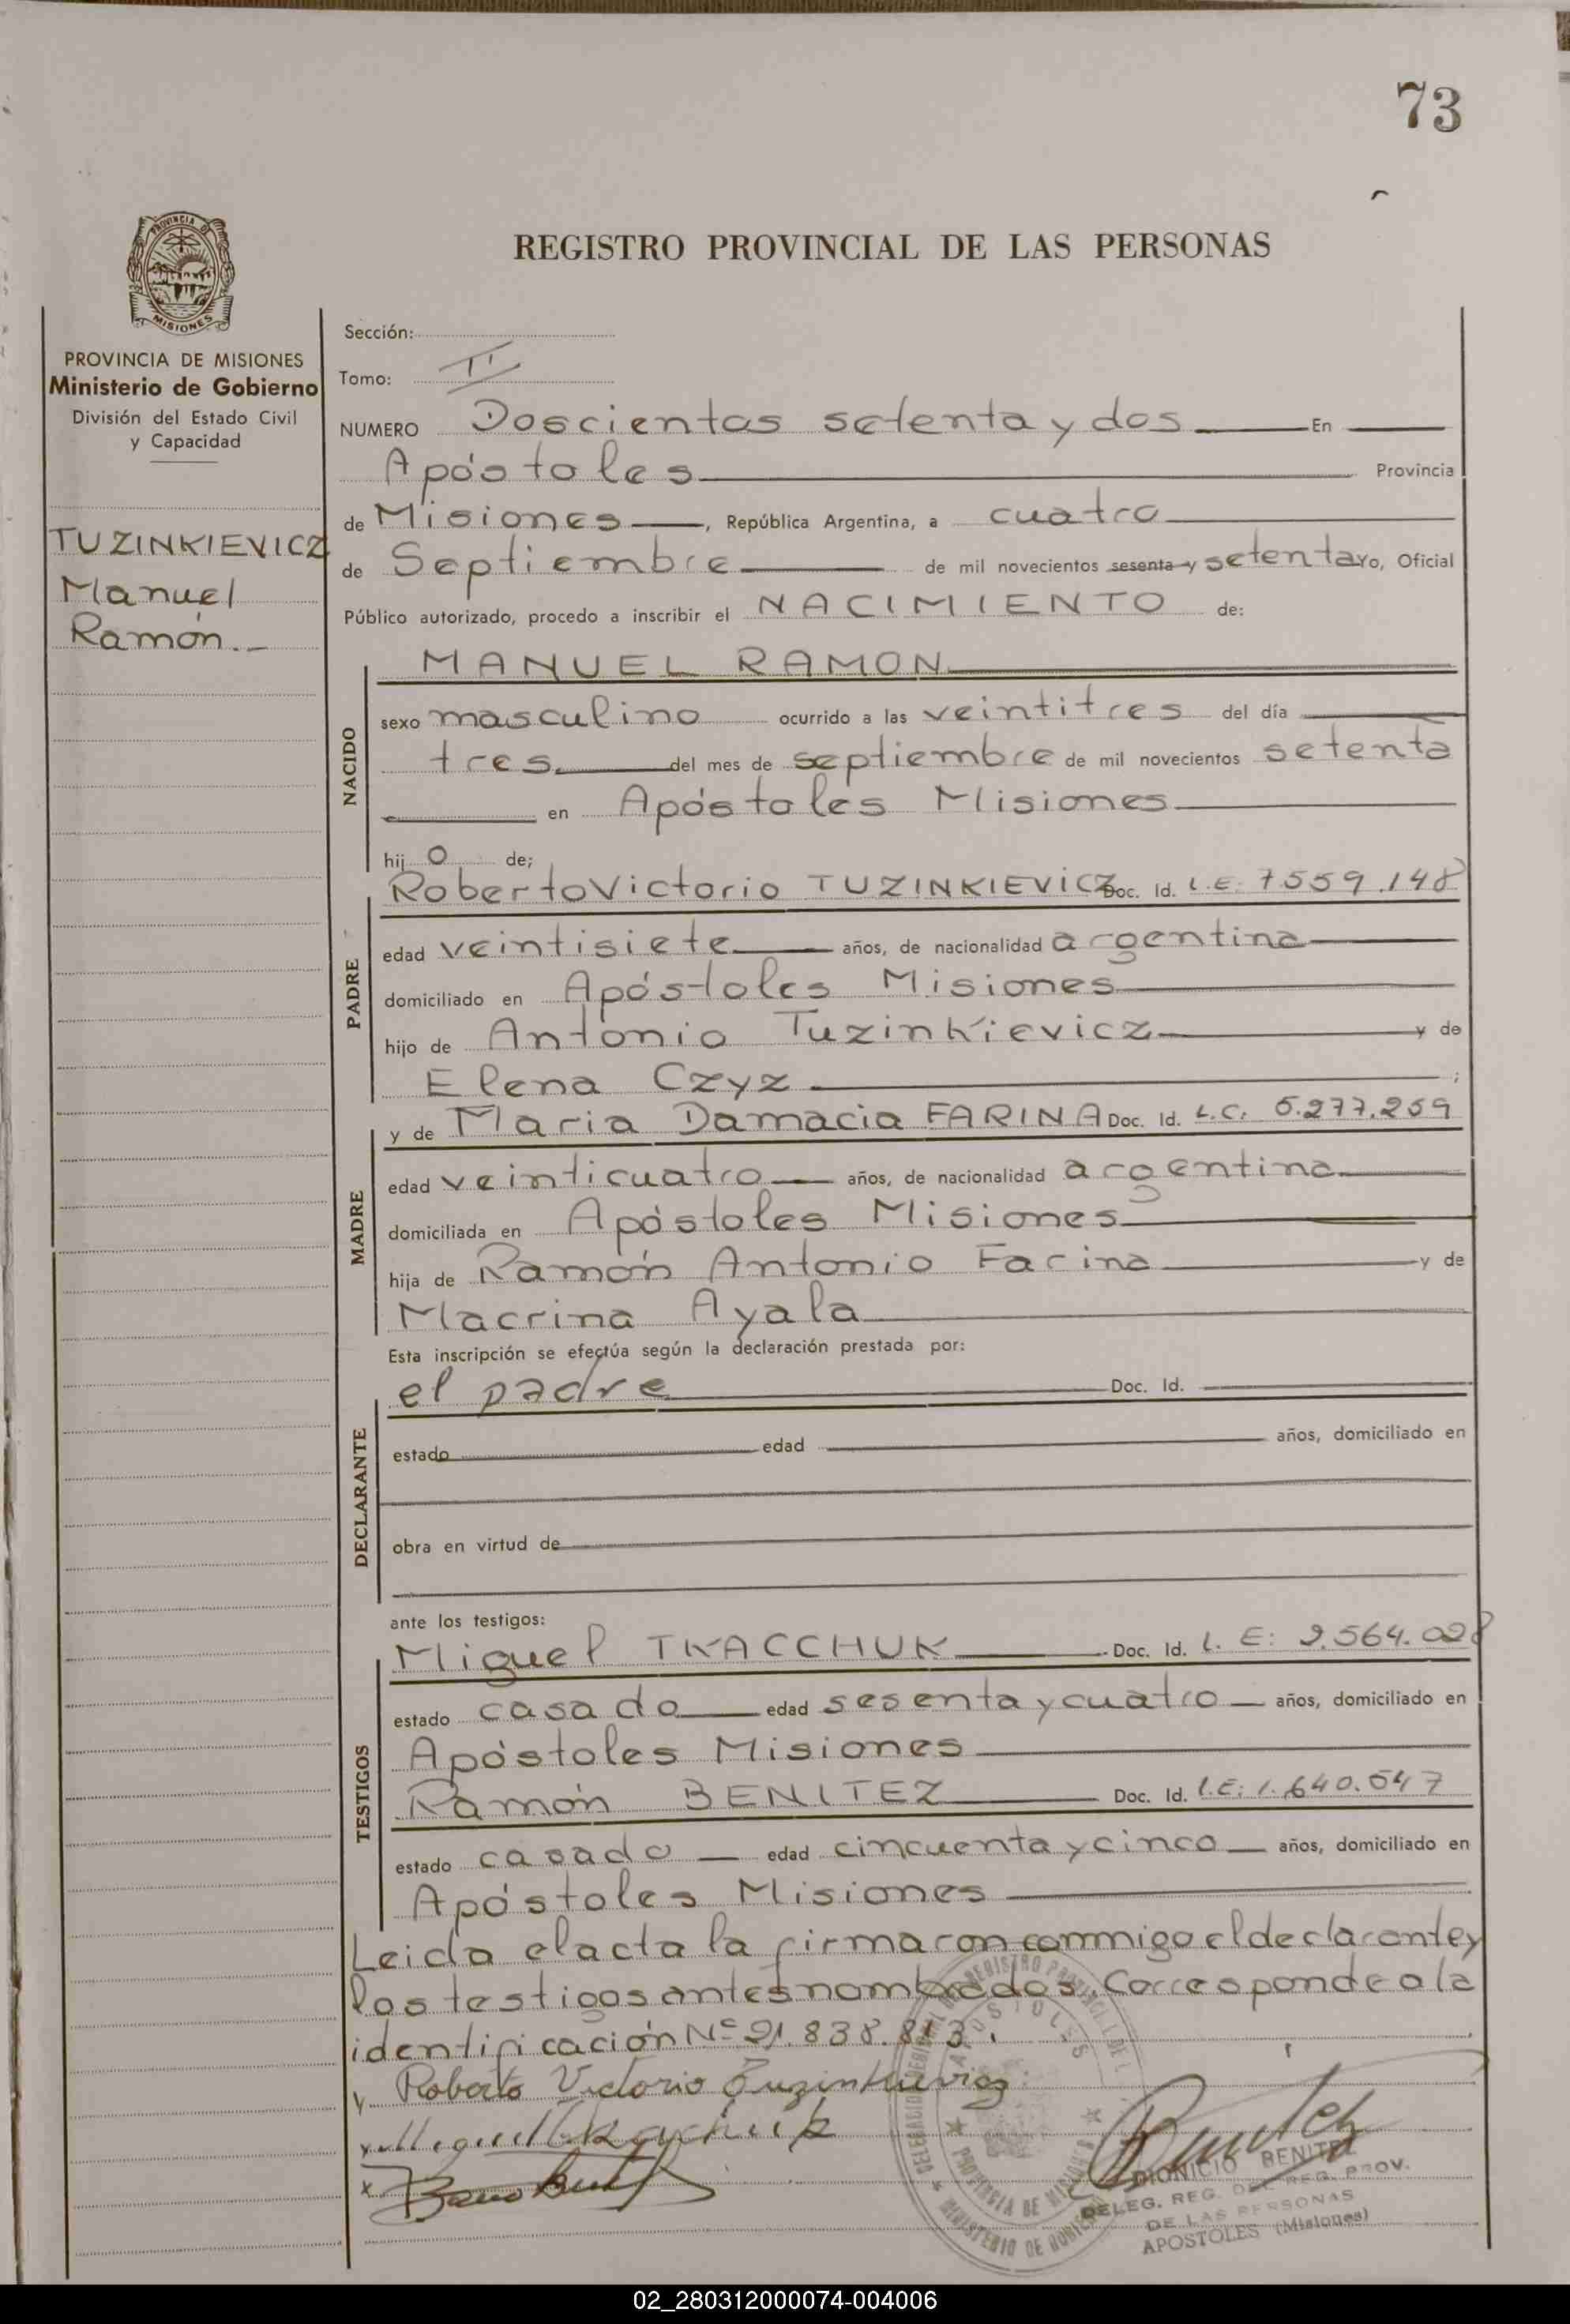 73
REGISTRO PROVINCIAL DE LAS PERSONAS
PROVINCIA DE
MISIONES
PROVINCIA DE MISIONES
Ministerio de Gobierno
División del Estado Civil
y Capacidad
TUZINKIEVICZ
Manuel
Ramón.-
Sección:
Tomo: II
NUMERO Doscientas setenta y dos En
Apóstoles Provincia
de Misiones, República Argentina, a cuatro
de Septiembre de mil novecientos sesenta y setenta yo, Oficial
Público autorizado, procedo a inscribir el NACIMIENTO de:
NACIDO
MANUEL RAMON
sexo masculino ocurrido a las veintitres del día
tres del mes de septiembre de mil novecientos setenta
en Apóstoles Misiones
hijo de;
PADRE
Roberto Victorio TUZINKIEVICZ Doc. Id. L.E. 7559.148
edad veintisiete años, de nacionalidad argentina
domiciliado en Apóstoles Misiones
hijo de Antonio Tuzinkievicz y de
Elena Czyz ;
MADRE
y de Maria Damacia FARINA Doc. Id. L.C. 5.277.259
edad veinticuatro años, de nacionalidad argentina
domiciliada en Apóstoles Misiones
hija de Ramón Antonio Farina y de
Macrina Ayala
Esta inscripción se efectúa según la declaración prestada por:
DECLARANTE
el padre Doc. Id.
estado edad años, domiciliado en
obra en virtud de
ante los testigos:
TESTIGOS
Miguel TKACCHUK Doc. Id. L. E: 2.564.028
estado casado edad sesenta y cuatro años, domiciliado en
Apóstoles Misiones
Ramón BENITEZ Doc. Id. L.E: 1.640.547
estado casado edad cincuenta y cinco años, domiciliado en
Apóstoles Misiones
Leida el acta la firmaron commigo el declarante y
los testigos antes nombrados. Corresponde a la
identificación Nº 21.838.813.
Roberto Victorio Tuzinkievicz
DIONICIO BENITEZ
DELEG. REG. DEL REG. PROV.
DE LAS PERSONAS
APOSTOLES (Misiones)
APOSTOLES
PROVINCIA DE MISIONES
MINISTERIO DE GOBIERNO
02_280312000074-004006